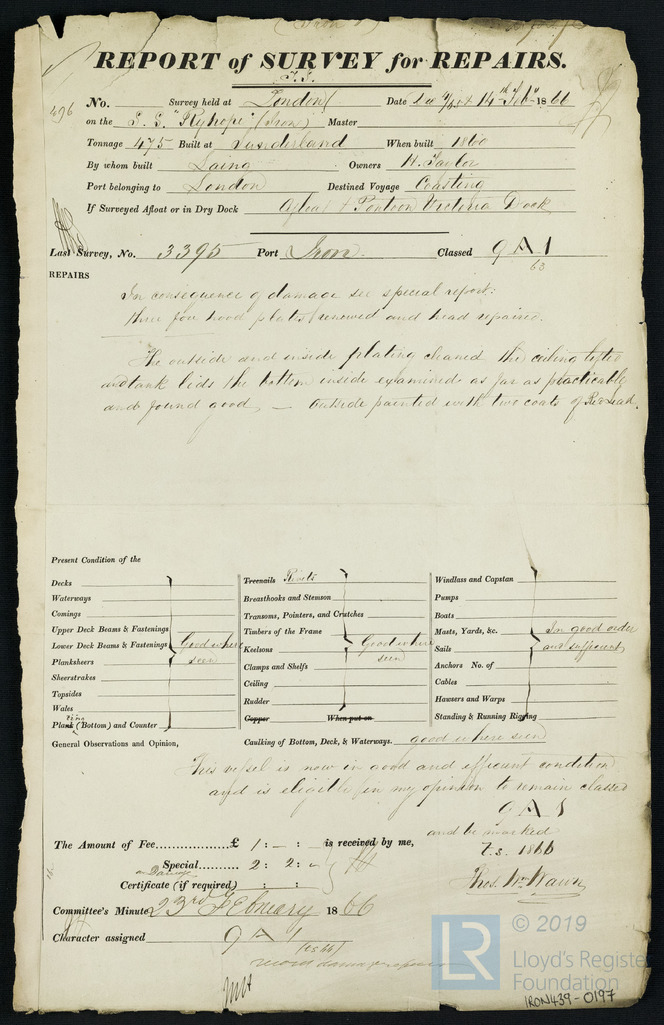 REPORT of SURVEY for REPAIRS.
496
No. Survey held at London Date 14th Feb 1866
on the S. S. "Ryhope" (Iron) Master
Tonnage 475 Built at Sunderland When built 1860
By whom built Laing Owners H. Taylor
Port belonging to London Destined Voyage Coasting
If Surveyed Afloat or in Dry Dock Afloat & Pontoon Victoria Dock
Last Survey, No. 3395 Port Iron Classed 9 A 1
63
REPAIRS
In consequence of damage see special report:
three fore hood plates renewed and head repaired.
The outside and inside plating cleaned the ceiling lifted
and tank lids the bottom inside examined as far as practicable
and found good — Outside painted with two coats of Red Lead.
Present Condition of the
Decks
Waterways
Comings
Upper Deck Beams & Fastenings
Lower Deck Beams & Fastenings Good where
Planksheers seen
Sheerstrakes
Topsides
Wales
Plank (Bottom) and Counter
Treenails Rivets
Breasthooks and Stemson
Transoms, Pointers, and Crutches
Timbers of the Frame
Keelsons Good where
Clamps and Shelfs seen
Ceiling
Rudder
Copper When put on
Windlass and Capstan
Pumps
Boats
Masts, Yards, &c. In good order
Sails and sufficient
Anchors No. of
Cables
Hawsers and Warps
Standing & Running Rigging
General Observations and Opinion, Caulking of Bottom, Deck, & Waterways. good where seen
This vessel is now in good and efficient condition
and is eligible in my opinion to remain classed
9 A 1
and be marked
T.S. 1866
The Amount of Fee £ 1 : – : is received by me,
Special 2 : 2 : –
on Damage
Certificate (if required) : :
Thos. Wm Wawn
Committee's Minute 23rd February 1866
Character assigned 9 A 1
record damage repairs
LR © 2019
Lloyd's Register
Foundation
IRON439-0197